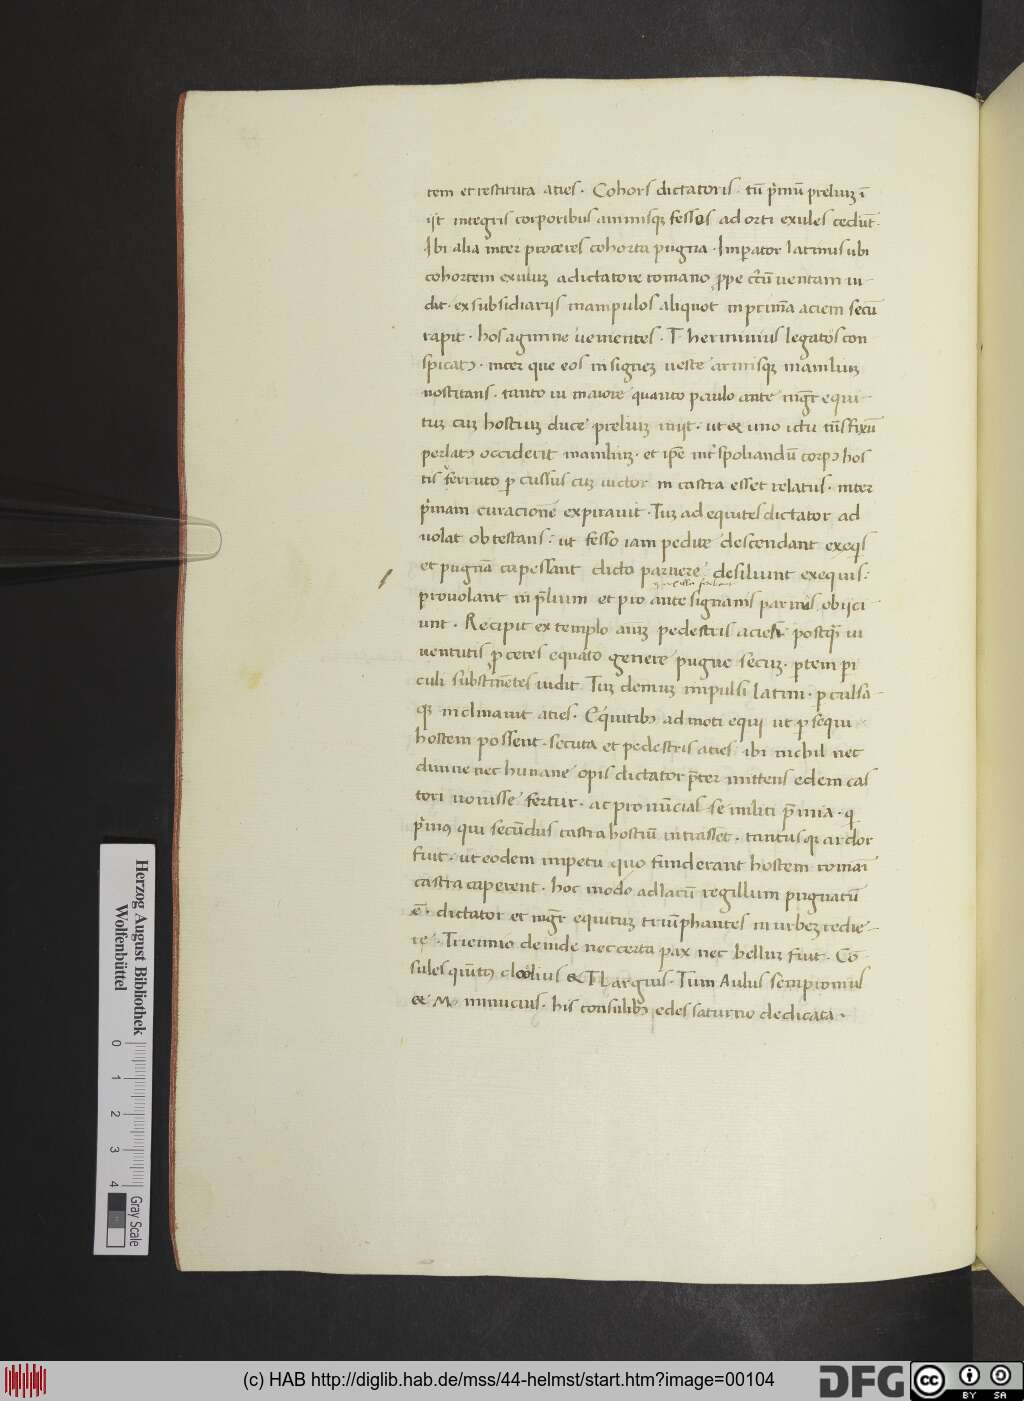 tem et restituta acies. Cohors dictatoris. tũ p̃imũ preliuꝫ ĩ
ijt integris corporibus animisqꝫ fessos adorti exules cedũt.
Ibi alia inter proceres cohorta pugna. Imperator latinus ubi
cohortem exuluꝫ adictatore romano ꝓpe cĩcũuentam ui-
dit. exsubsidiarijs manipulos aliquot inprimã aciem secũ
rapit. hos agmine uenientes. T herminius legatos con
spicatꝰ. inter que eos insigneꝫ ueste armisqꝫ manliuꝫ
noscitans. tanto ui maiore quanto paulo ante mgr̃ equi-
tuꝫ cuꝫ hostiuꝫ duce preliuꝫ inijt. ut et uno ictu trãsfixũ
perlatꝰ occiderit manliuꝫ. et ip̃e int̃ spoliandũ corpꝰ hos
tis ferruto ꝑcussus cuꝫ uictor in castra esset relatus. inter
p̃imam curacionẽ expirauit. Tuꝫ ad equites dictator ad
uolat obtestans: ut fesso iam pedite descendant exeq̃s
et pugnã capessant dicto paruere desiliunt exequis:
prouolant in p̃lium et pro antesignanis parmas obijci
unt. Recipit extemplo aĩuꝫ pedestris acies. postq̃ iu
uentutis ꝓceres equato genere pugne secuꝫ. ꝑtem ꝑi
culi substinẽtes uidit. Tuꝫ demuꝫ impulsi latini. ꝑculsa-
qꝫ inclinauit acies. Equitibꝰ admoti equi ut ꝑsequi
hostem possent. secuta et pedestris acies ibi nichil nec
diuine nec humane opis dictator p̃ter mittens edem cas
tori uouisse fertur. ac pronũcias se militi p̃mia. q
p̃imꝰ qui secũdus castra hostiũ intrasset. tantusqꝫ ardor
fuit. ut eodem impetu quo funderant hostem romaĩ
castra caperent. hoc modo adlacũ regillum pugnatũ
ẽ. dictator et mgr̃ equituꝫ triũphantes inurbeꝫ redie-
re. Triennio deinde nec certa pax nec belluꝫ fuit. Co-
sules quĩtꝰ cloolius & T Largius. Tum Aulus sempronius
& M. minucius. his consulibꝰ edes saturno dedicata.
Herzog August Bibliothek
Wolfenbüttel
0 1 2 3 4
Gray Scale
(c) HAB http://diglib.hab.de/mss/44-helmst/start.htm?image=00104
DFG
cc BY SA